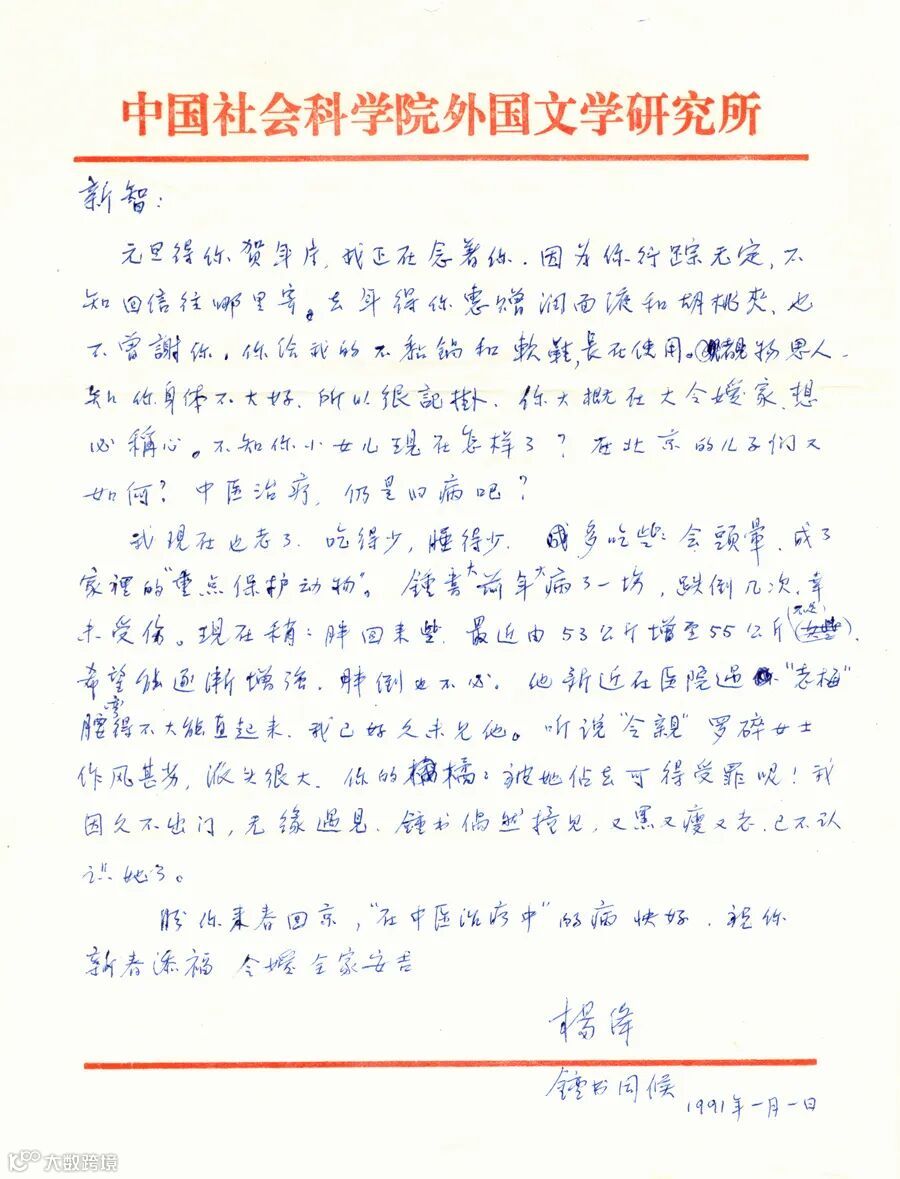 中国社会科学院外国文学研究所
新智：
元旦得你贺年片,我正在念着你.因为你行踪无定,不
知回信往哪里寄。去年得你惠赠润面液和胡桃夹,也
不曾謝你.你给我的不黏鍋和軟鞋,長在使用。覩物思人.
知你身体不大好.所以很記掛.你大概在大令嫒家.想
必稱心。不知你小女儿现在怎样了？在北京的儿子们又
如何？中医治疗,仍是旧病吧？
我现在也老了.吃得少,睡得少.多吃些会頭暈.成了
家裡的“重点保护动物”。鍾書大前年大病了一场,跌倒几次,幸
未受伤。现在稍：胖回来些.最近由53公斤增至55公斤(不足).
希望能逐渐增強.胖倒也不必。他新近在医院遇“老楊”
腰弯得不大能直起来.我已好久未见他。听说“令親”罗碎女士
作风甚劣,派头很大.你的橘：被她佔去可得受罪呢！我
因久不出门,无缘遇见.鍾书偶然撞见,又黑又瘦又老.已不认
识她了。
盼你来春回京,“在中医治疗中”的病快好.祝你
新春添福 令嫒全家安吉
楊绛
鍾书同候
1991年一月一日
大数跨境